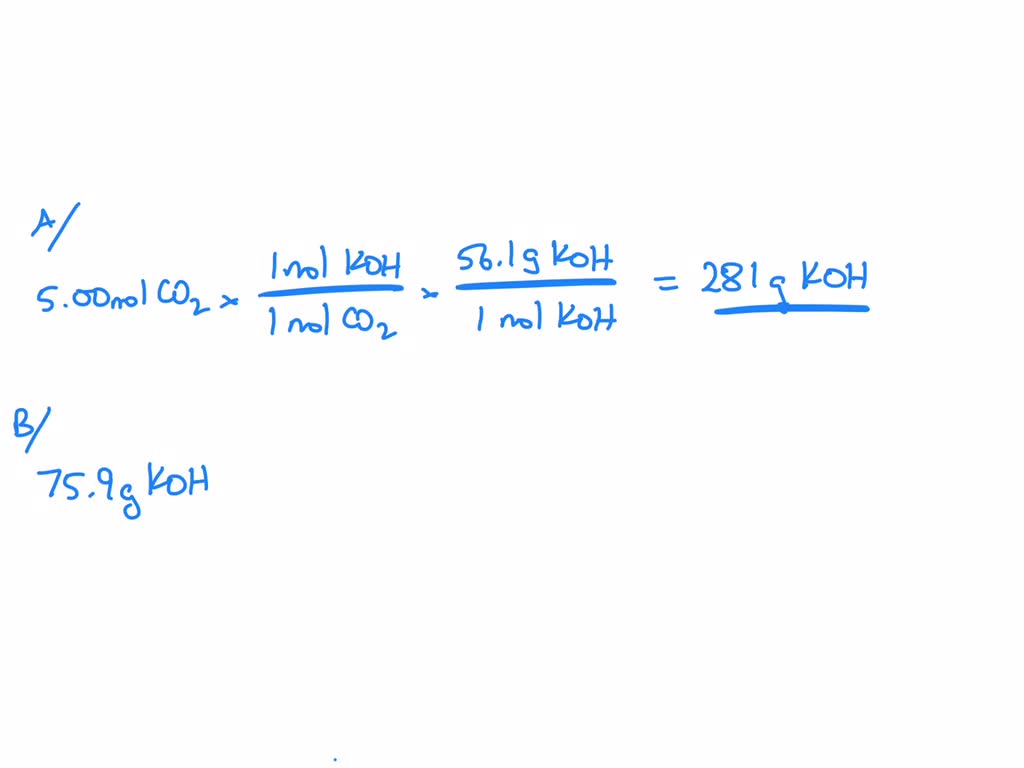 A/
5.00mol CO₂ × 1 mol KOH / 1 mol CO₂ × 56.1g KOH / 1 mol KOH = 281g KOH
B/
75.9g KOH